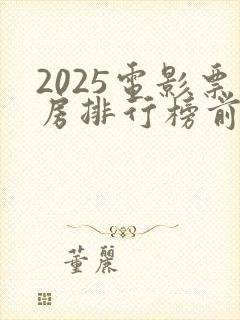 2025電影票
房排行榜前
董麗